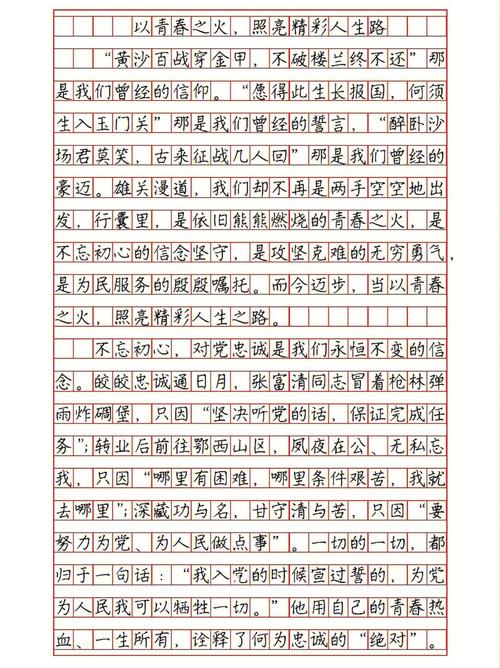 以青春之火，照亮精彩人生路
“黄沙百战穿金甲，不破楼兰终不还”那
是我们曾经的信仰。“愿得此生长报国，何须
生入玉门关”那是我们曾经的誓言，“醉卧沙
场君莫笑，古来征战几人回”那是我们曾经的
豪迈。雄关漫道，我们却不再是两手空空地出
发，行囊里，是依旧熊熊燃烧的青春之火，是
不忘初心的信念坚守，是攻坚克难的无穷勇气，
是为民服务的殷殷嘱托。而今迈步，当以青春
之火，照亮精彩人生之路。
不忘初心，对党忠诚是我们永恒不变的信
念。皎皎忠诚通日月，张富清同志冒着枪林弹
雨炸碉堡，只因“坚决听党的话，保证完成任
务”；转业后前往鄂西山区，夙夜在公、无私忘
我，只因“哪里有困难，哪里条件艰苦，我就
去哪里”；深藏功与名，甘守清与苦，只因“要
努力为党、为人民做点事”。一切的一切，都
归于一句话：“我入党的时候宣过誓的，为党
为人民我可以牺牲一切。”他用自己的青春热
血、一生所有，诠释了何为忠诚的“绝对”。